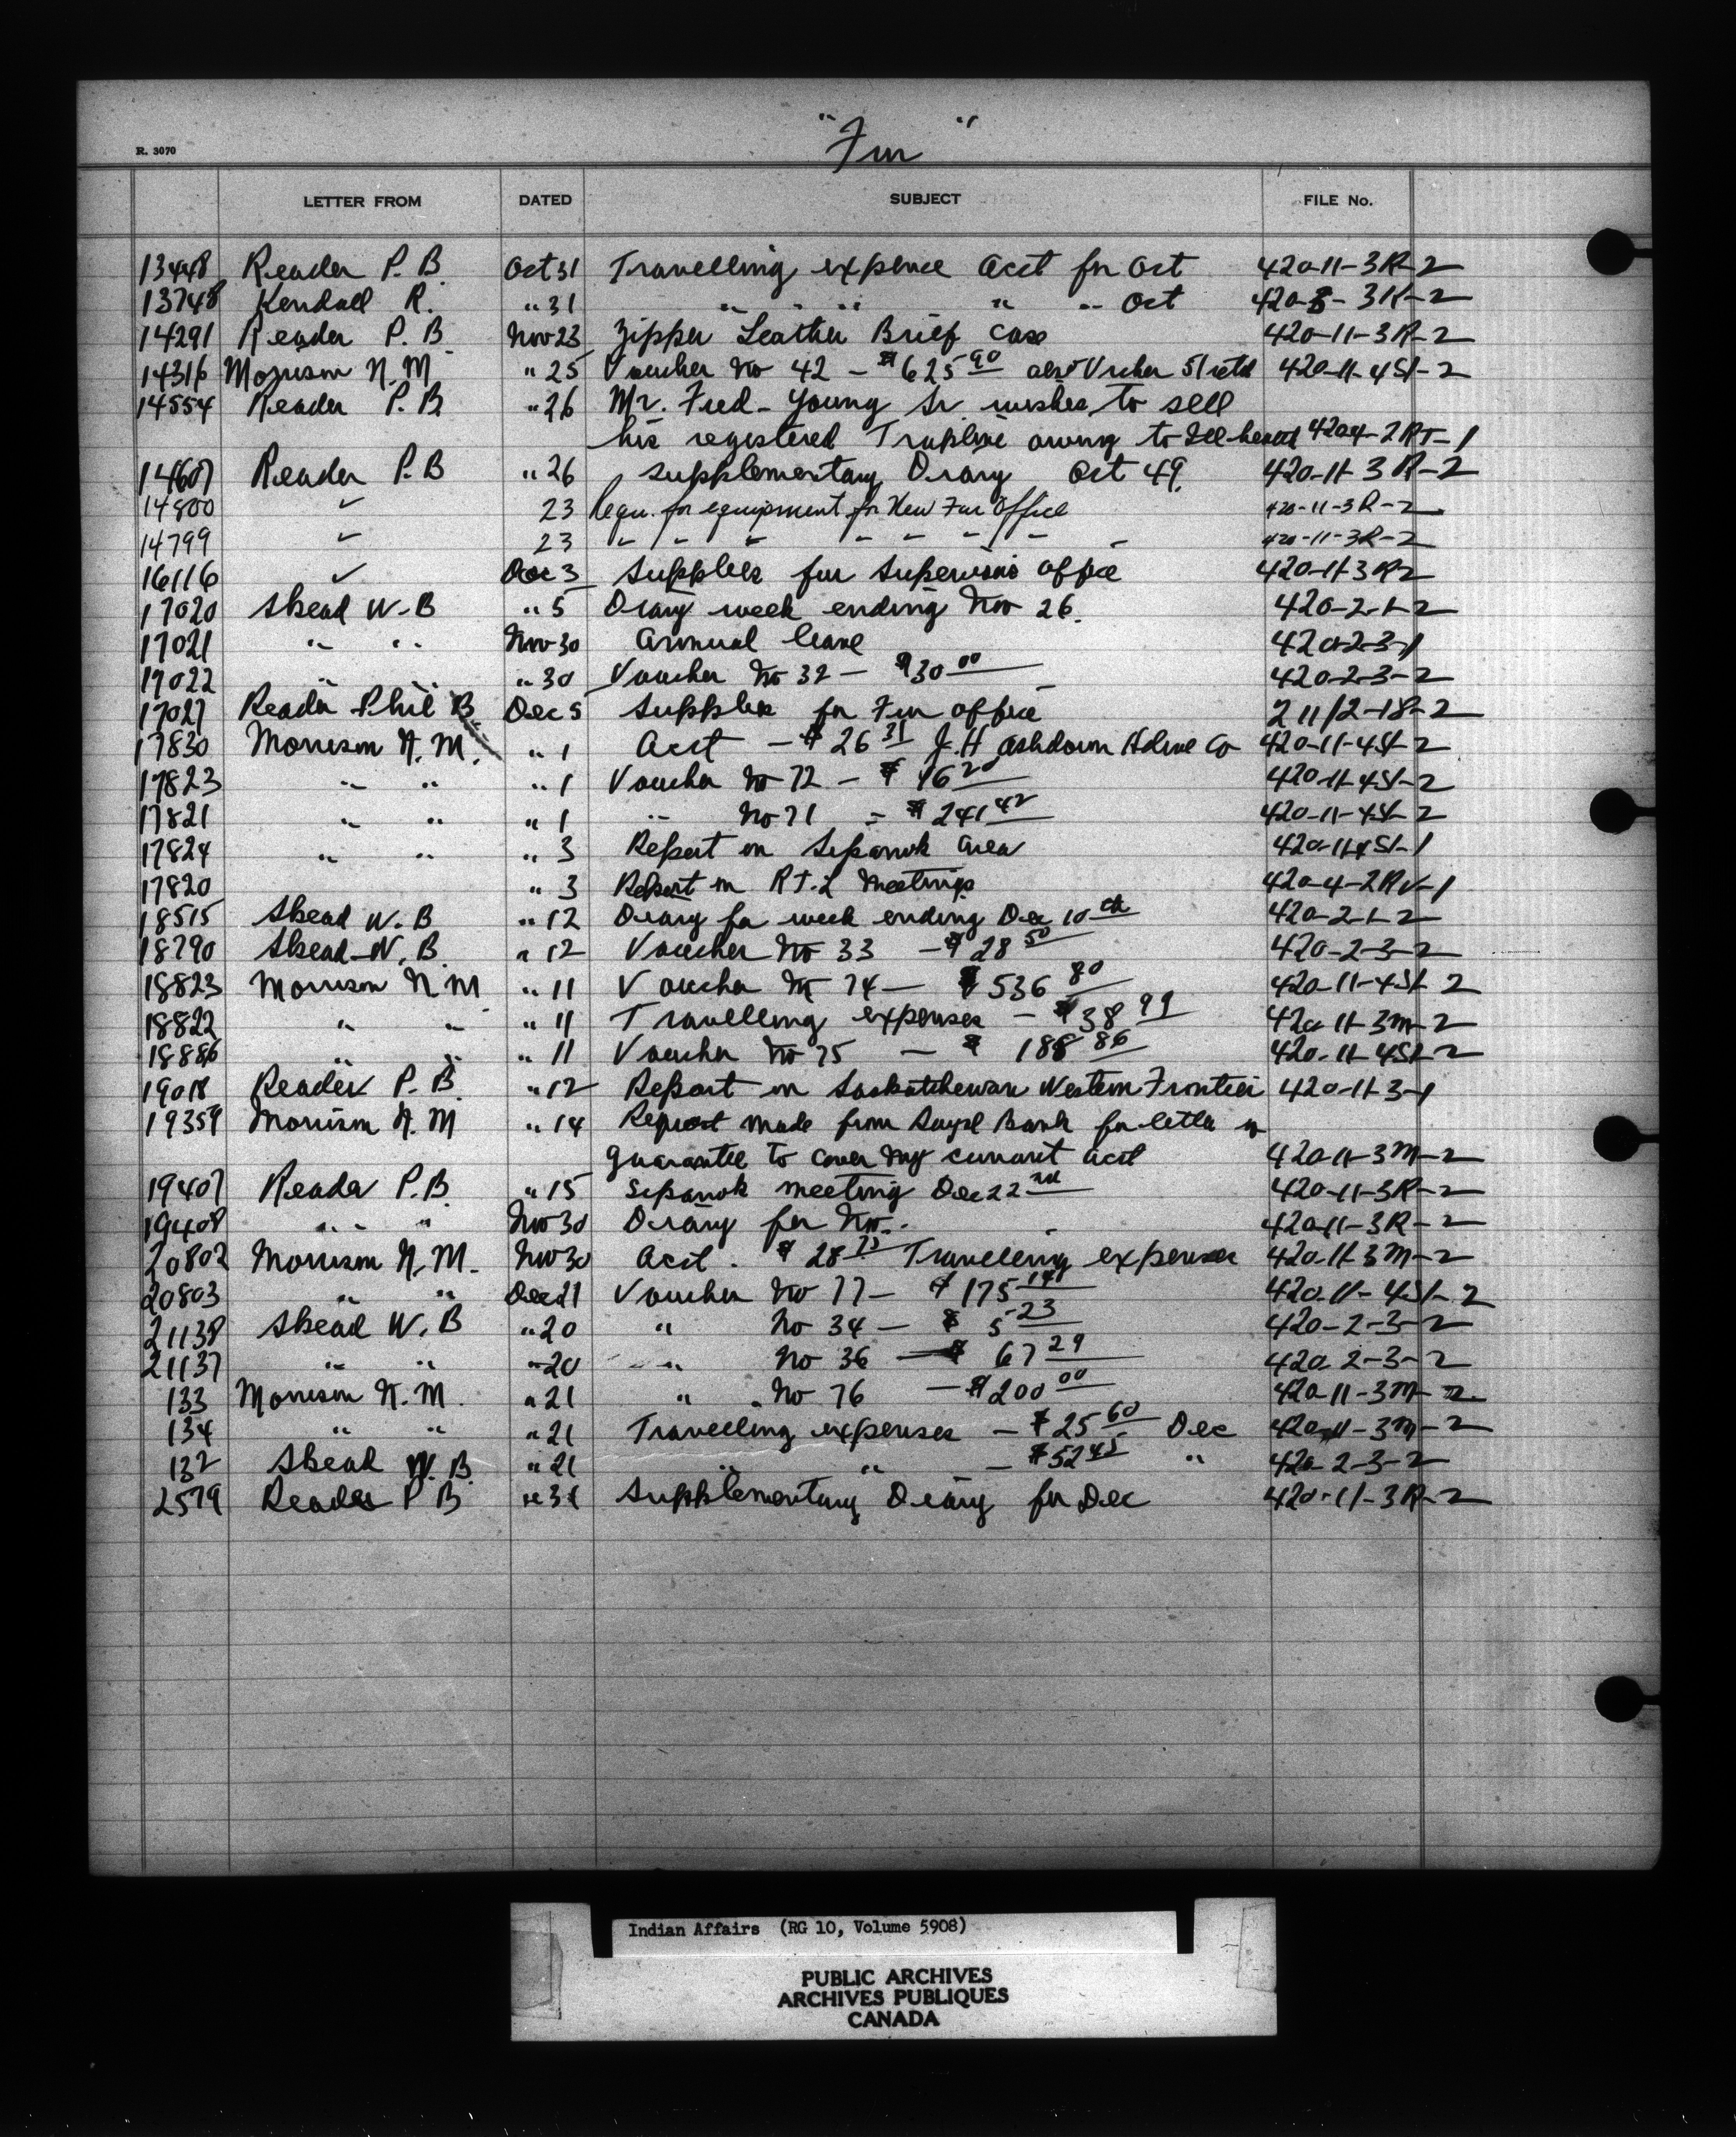 "Fur"
R. 3070
LETTER FROM DATED SUBJECT FILE No.
13448 Reader P. B. Oct 31 Travelling expence acct for Oct 420-11-3R-2
13748 Kendall R. " 31 " " " " " Oct 420-8-3K-2
14291 Reader P. B. Nov 23 Zipper Leather Brief case 420-11-3R-2
14316 Morrison N. M. " 25 Voucher No 42 - $625 90 also Vcher 51 retd 420-11-4SI-2
14554 Reader P. B. " 26 Mr. Fred Young Sr. wishes to sell
his registered Trapline owing to Ill-health 420-4-2RT-1
14607 Reader P. B " 26 Supplementary Diary Oct 49. 420-11-3R-2
14800 ✓ 23 Requ. for equipment for New Fur Office 420-11-3R-2
14799 ✓ 23 " " " " " " " " 420-11-3R-2
16116 ✓ Dec 3 Supplies fur Supervisors office 420-11-3R-2
17020 Skead W. B " 5 Diary week ending Nov 26. 420-2-1-2
17021 " " Nov 30 Annual leave 420-2-3-1
17022 " " " 30 Voucher No 32 - $30 00 420-2-3-2
17027 Reader Phil B Dec 5 Supplies for Fur office 211/2-18-2
17830 Morrison N. M. " 1 Acct - $26 31 J. H Ashdown Hdwe Co 420-11-4SI-2
17823 " " " 1 Voucher No 72 - $ 16 20 420-11-4SI-2
17821 " " " 1 " No 71 - $241 42 420-11-4SI-2
17824 " " " 3 Report on Sipanok area 420-11-4SI-1
17820 " 3 Report on R.T.L Meetings 420-4-2RV-1
18515 Skead W. B " 12 Diary for week ending Dec 10th 420-2-1-2
18790 Skead W. B. " 12 Voucher No 33 - $28 50 420-2-3-2
18823 Morrison N M " 11 Voucher No 74 - $536 80 420-11-4SI-2
18822 " " " 11 Travelling expenses - $38 99 420-11-3M-2
18886 " " " 11 Voucher No 75 - $ 188 86 420-11-4SI-2
19018 Reader P. B " 12 Report on Saskatchewan Western Frontier 420-11-3-1
19359 Morrison N. M " 14 Request made from Royal Bank for letter of
guarantee to cover my current acct 420-11-3M-2
19407 Reader P. B " 15 Sipanok meeting Dec 22nd 420-11-3R-2
19408 " " " Nov 30 Diary for Nov. 420-11-3R-2
20802 Morrison N. M. Nov 30 Acct. $28 75 Travelling expenses 420-11-3M-2
20803 " " Dec 21 Voucher No 77 - $175 14 420-11-4SI-2
21138 Skead W. B " 20 " No 34 - $ 5 23 420-2-3-2
21137 " " " 20 " No 36 - $ 67 29 420-2-3-2
133 Morrison N. M. " 21 " No 76 - $200 00 420-11-3M-2
134 " " " 21 Travelling expenses - $25 60 Dec 420-11-3M-2
132 Skead W. B. " 21 " " - $52 45 " 420-2-3-2
2579 Reader P B " 31 Supplementary Diary for Dec 420-11-3R-2
Indian Affairs (RG 10, Volume 5908)
PUBLIC ARCHIVES
ARCHIVES PUBLIQUES
CANADA